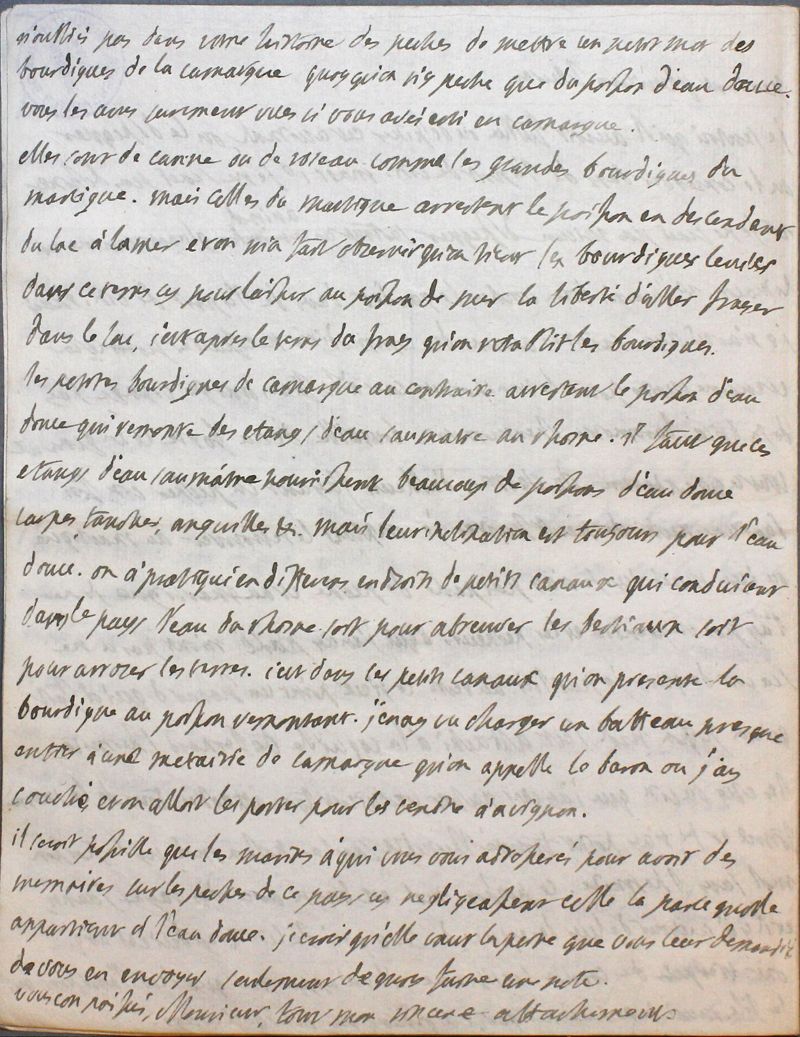 n'oubliés pas dans votre histoire des peches de mettre un petit mot des
bourdigues de la camargue quoyqu'on n'y peche que du poisson d'eau douce.
vous les avés surement vues si vous avés eté en camargue.
elles sont de canne ou de roseau comme les grandes bourdigues du
martigue. mais celles du martigue arrestent le poisson en descendant
du lac à la mer et on m'a fait observer qu'on tient les bourdigues levées
dans ce tems cy pour laisser au poisson de mer la liberté d'aller frayer
dans le lac, c'est apres le tems du fray qu'on retablit les bourdigues.
les petites bourdigues de camargue au contraire arrestent le poisson d'eau
douce qui remonte des etangs d'eau saumatre au rhosne. il faut que ces
etangs d'eau saumâtre nourrissent beaucoup de poissons d'eau douce
carpes tanches, anguilles &c. mais leur inclination est toujours pour l'eau
douce. on a pratiqué en differens endroits de petits canaux qui conduisent
dans le pays l'eau du rhosne soit pour abreuver les bestiaux soit
pour arroser les terres. c'est dans ces petits canaux qu'on presente la
bourdigue au poisson remontant. j'en ay vu charger un batteau presque
entier à une metairie de camargue qu'on appelle le baron ou j'ay
couché, et on alloit les porter pour les vendre à avignon.
il seroit possible que les marins à qui vous vous adresserés pour avoir des
memoires sur les peches de ce pays cy negligeassent celle la parce qu'elle
appartient à l'eau douce. je crois qu'elle vaut la peine que vous leur demandiés
de vous en envoyer seulement de quoy faire une note.
vous connoissés, Monsieur, tout mon sincere attachement